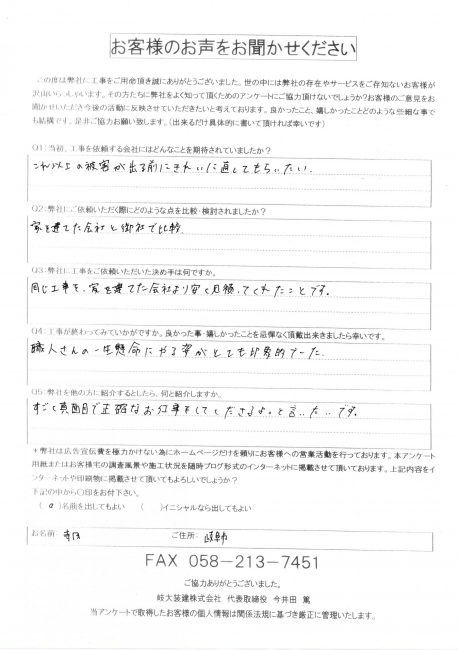 お客様のお声をお聞かせください
この度は弊社に工事をご用命頂き誠にありがとうございました。世の中には弊社の存在やサービスをご存知ないお客様が
沢山いらっしゃいます。その方たちに弊社をよく知って頂くためのアンケートにご協力頂けないでしょうか?お客様のご意見をお
聞かせいただき今後の活動に反映させていただきたいと考えております。良かったこと、嬉しかったことどのような些細な事で
も結構です。是非ご協力お願い致します。（出来るだけ具体的に書いて頂ければ幸いです）
Q1：当初、工事を依頼する会社にはどんなことを期待されていましたか?
これ以上の被害が出る前にきれいに直してもらいたい.
Q2：弊社にご依頼いただく際にどのような点を比較・検討されましたか?
家を建てた会社と御社で比較.
Q3：弊社に工事をご依頼いただいた決め手は何ですか。
同じ工事を、家を建てた会社より安く見積ってくれたことです。
Q4：工事が終わってみていかがですか。良かった事・嬉しかったことを忌憚なく頂戴出来きましたら幸いです。
職人さんの一生懸命にやる姿がとても印象的でした.
Q5：弊社を他の方に紹介するとしたら、何と紹介しますか。
すごく真面目で正確なお仕事をしてくださるよ。と言いたいです。
＊弊社は広告宣伝費を極力かけない為にホームページだけを頼りにお客様への営業活動を行っております。本アンケート
用紙またはお客様宅の調査風景や施工状況を随時ブログ形式のインターネットに掲載させて頂いております。上記内容をイ
ンターネットや印刷物に掲載させて頂いてもよろしいでしょうか?
下記の中から〇印をお付下さい。
（ o ）名前を出してもよい （ ）イニシャルなら出してもよい
お名前： ご住所： 岐阜市
FAX 058-213-7451
ご協力ありがとうございました。
岐大装建株式会社 代表取締役 今井田 篤
当アンケートで取得したお客様の個人情報は関係法規に基づき厳正に管理いたします。